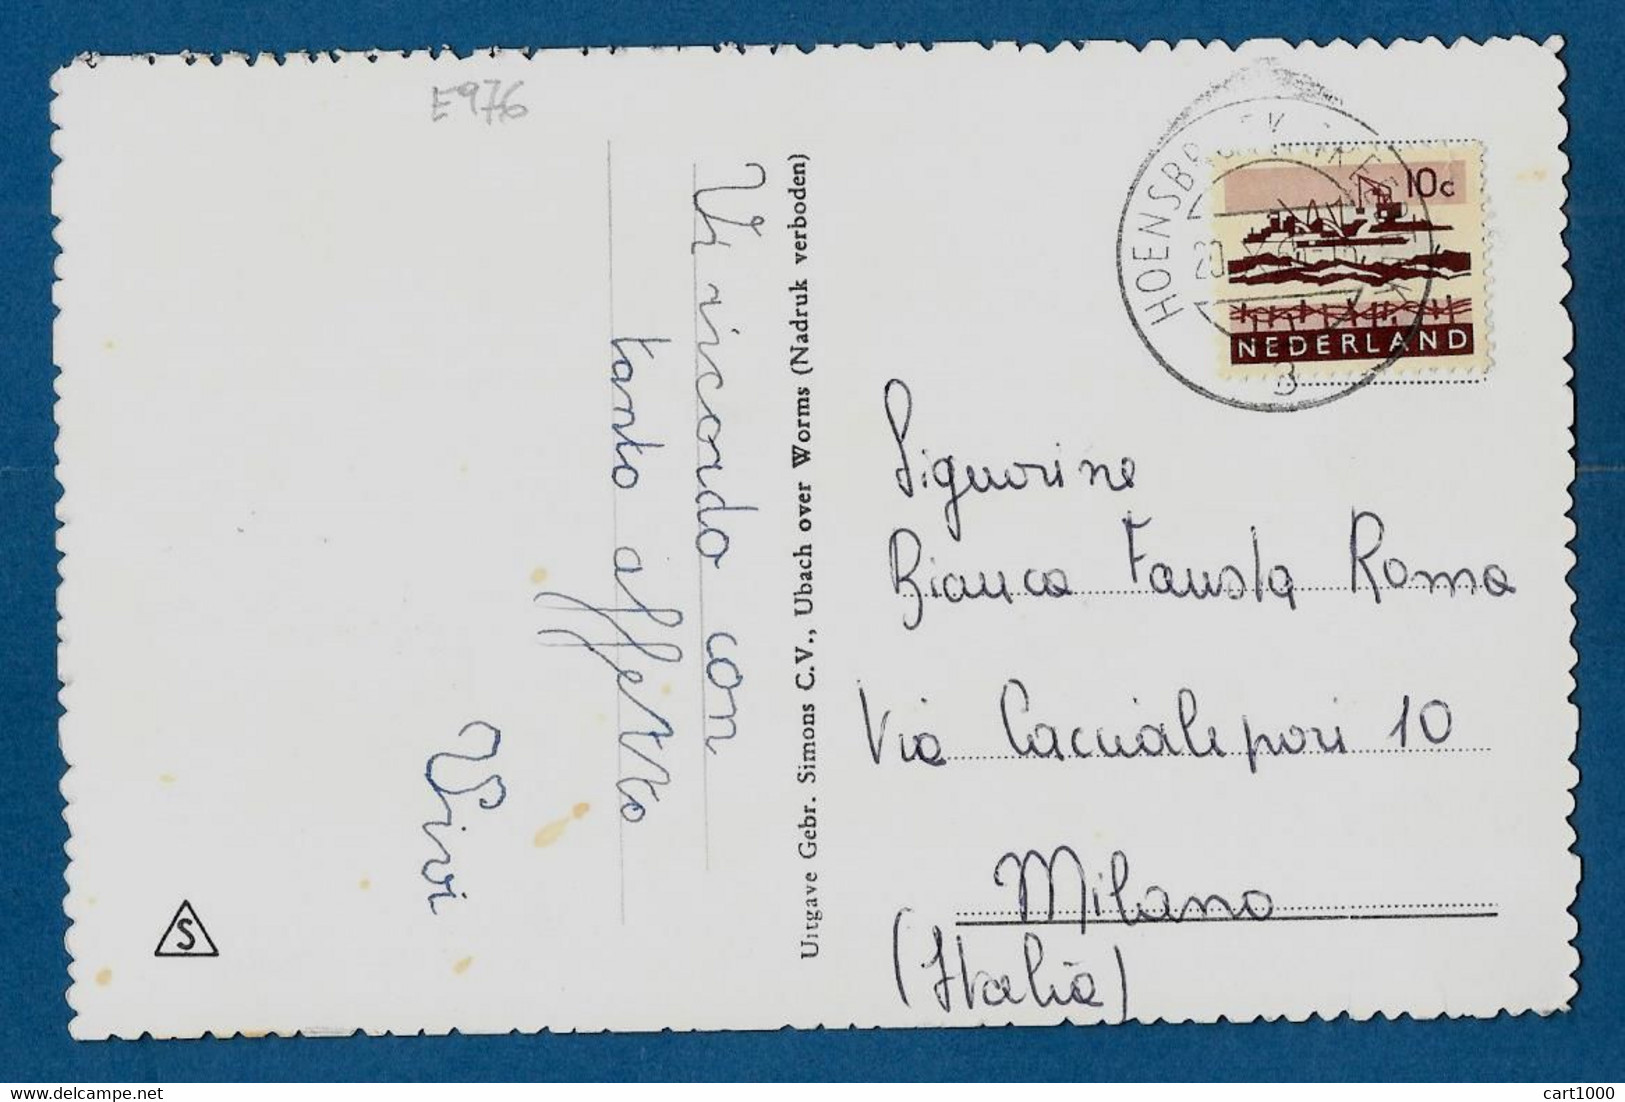 E976
Vi ricordo con
tanto affetto
Vivi
Uitgave Gebr. Simons C.V., Ubach over Worms (Nadruk verboden)
S
HOENSBROEK
3
10c
NEDERLAND
Signorine
Bianca Fausta Roma
Via Caccialepori 10
Milano
(Italia)
cart1000